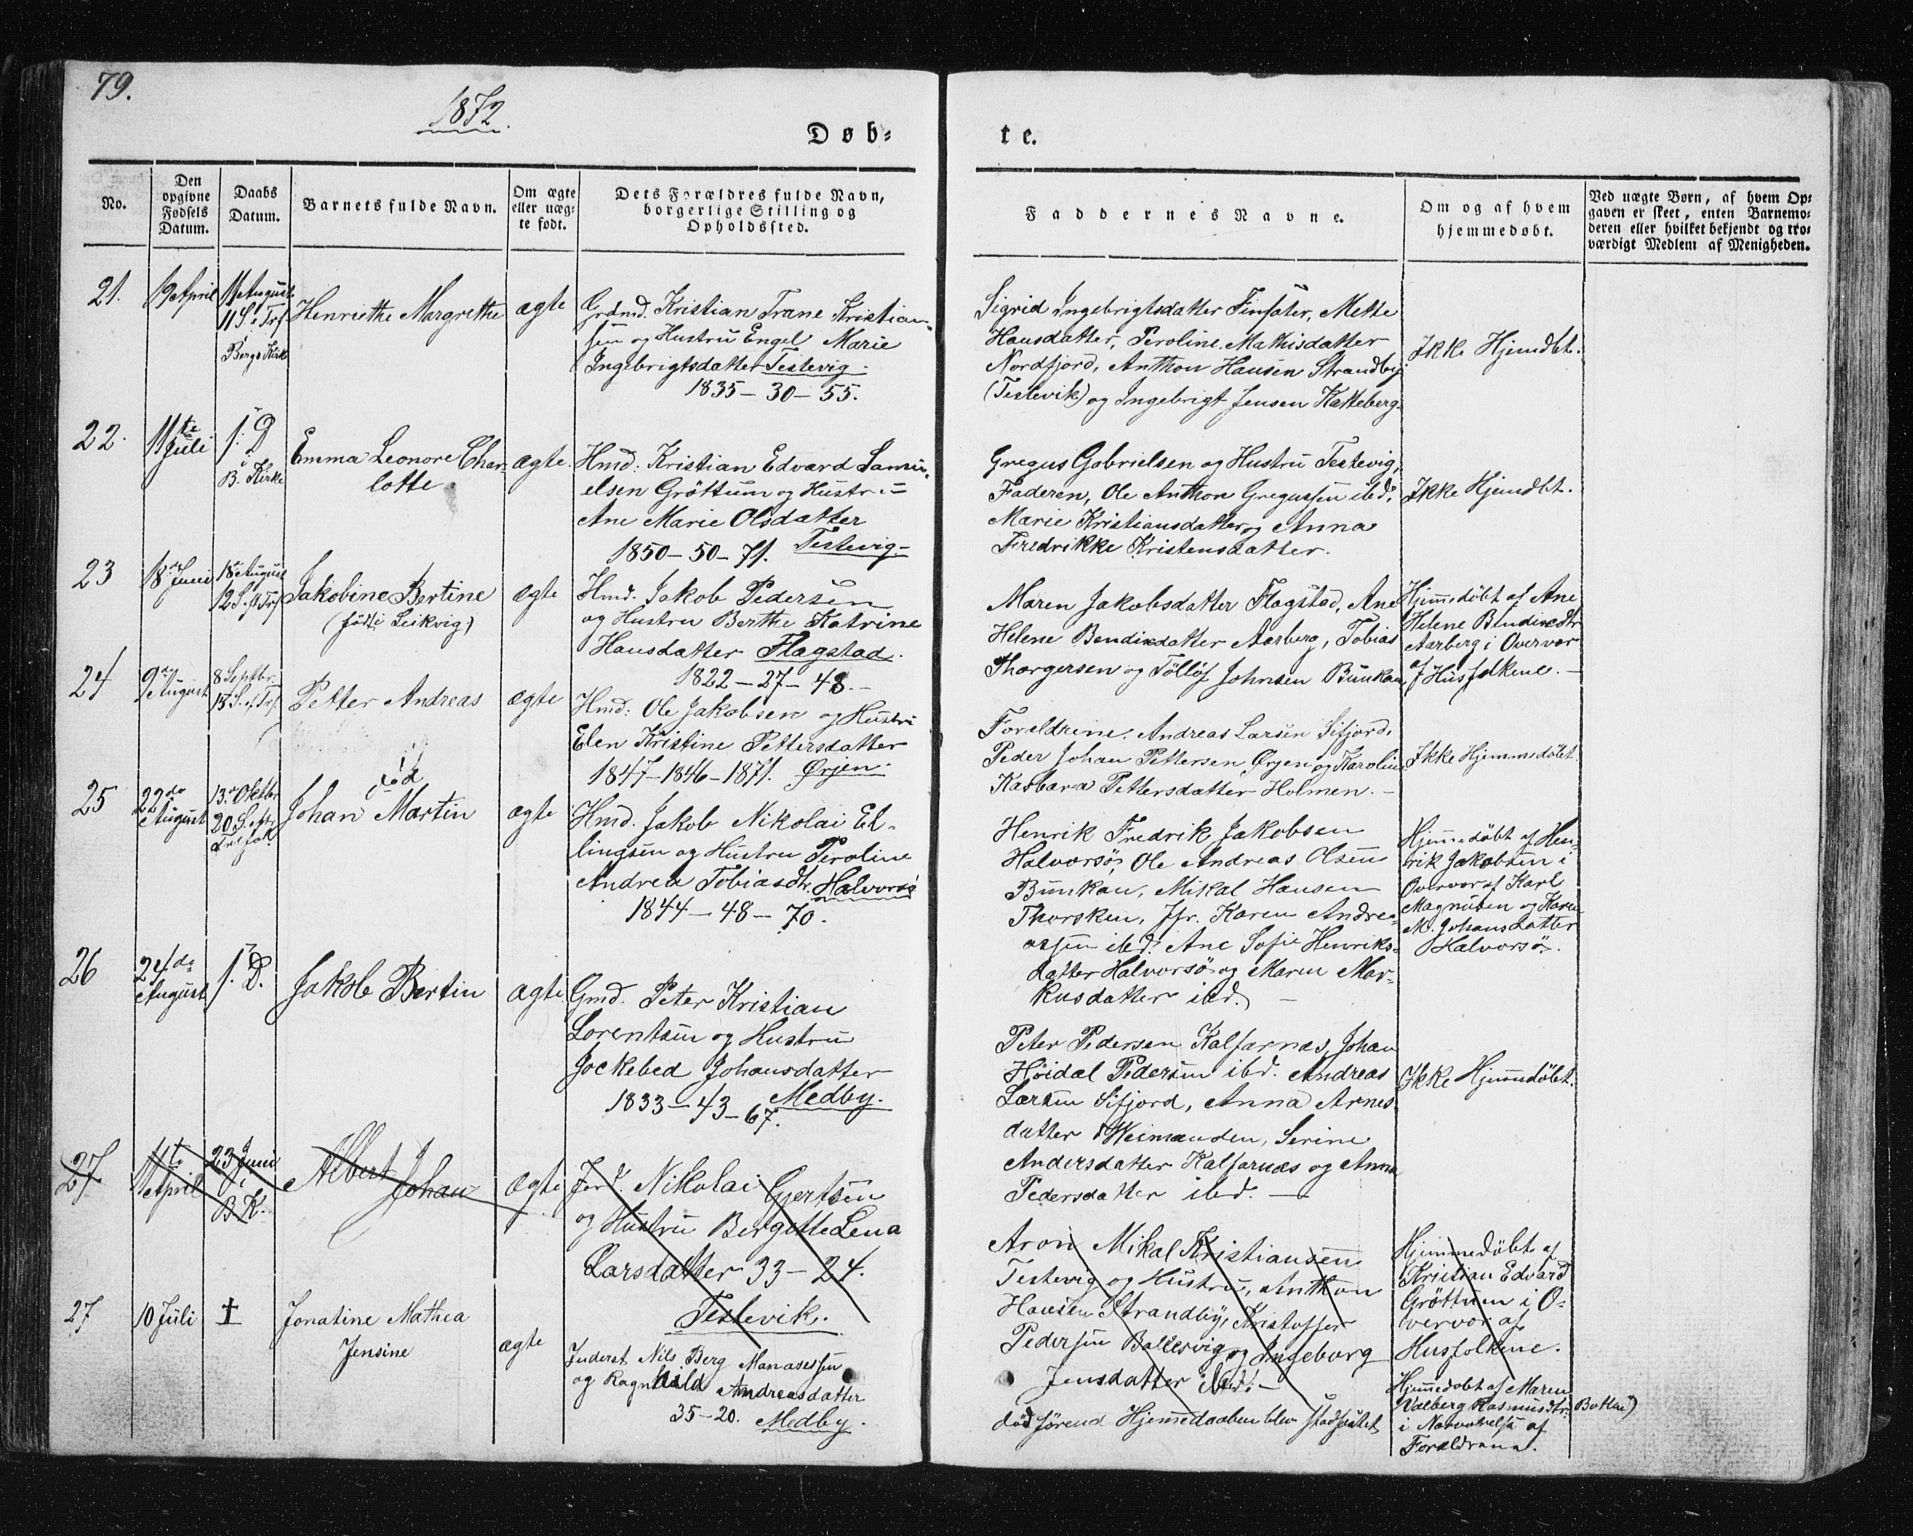 79.
1872.
Døb-
te.
No.
Den opgivne Fødsels Datum.
Daabs Datum.
Barnets fulde Navn.
Om ægte eller uægte født.
Dets Forældres fulde Navn, borgerlige Stilling og Opholdssted.
Faddernes Navne.
Om og af hvem hjemmedøbt.
Ved uægte Børn, af hvem Opgaven er skeet, enten Barnemoderen eller hvilket bekjendt og troværdigt Medlem af Menigheden.
21.
19 April
11 August
11 S. e. Trf
Bergs Kirk
Henriethe Margrethe
ægte
Grdmd. Kristian Trane Kristian-
sen og Hustru Engel Marie
Ingebrigtsdatter Testevig.
1835 - 30 - 55.
Sigrid Ingebrigtsdatter Finsæter, Mette
Hansdatter, Peroline Mathisdatter
Nordfjord, Anthon Hansen Strandby
(Testevik) og Ingebrigt Jensen Katteberg.
Ikke Hjemdbt.
22.
11te
Juli
s. D
i
B. Kirke
Emma Leonore Char-
lotte
ægte.
Hmd. Kristian Edvard Samu-
elsen Grøttum og Hustru
Ane Marie Olsdatter
1850 - 50 - 71. Testevig
Gregus Gabrielsen og Hustru Testevig,
Faderen, Ole Anthon Gregussen ibd.
Marie Kristiansdatter og Anna
Fredrikke Kristensdatter.
Ikke Hjemdbt.
23
18de Juni
18 August
12 S. e. Trf
Jakobine Bertine
(født i Leikvig)
ægte
Hmd. Jakob Pedersen
og Hustru Berthe Katrine
Hansdatter Flagstad.
1822 - 27 - 48.
Maren Jakobsdatter Flagstad, Ane
Helene Bendiksdatter Aasberg, Tobias
Thorgersen og Tølløf Johnsen Bunkan
Hjemmedøbt af Ane
Helene Bendiksdtr
Aarberg i Overvær
af Husfolkene.
24
9de
August
8 Septbr.
15 S. e. Trf.
Petter Andreas
ægte
Hmd: Ole Jakobsen og Hustru
Elen Kristine Pettersdatter
1847 - 1846 - 1871. Ørjen.
Forældrene. Andreas Larsen Sifjord,
Peder Johan Pettersen Ørjen og Karoline
Kasbara Pettersdatter Holmen.
Ikke Hjemmedøbt
25
22de
August
13. Oktbr
20 S. e.
Trefol
død
Johan Martin
ægte
Hmd. Jakob Nikolai El-
lingsen og Hustru Peroline
Andrea Tobiasdtr. Halvorsø
1844 - 48 - 70.
Henrik Fredrik Jakobsen
Halvorsø, Ole Andreas Olsen
Bunkan, Mikal Hansen
Thorsken, Jfr. Karen Andre-
assen ibd. Ane Sofie Henriks-
datter Halvorsø og Maren Mar-
kusdatter ibd.
Hjemmedøbt af Hen-
rik Jakobsen i
Overvær af Karl
Magnusen og Karen
M. Johansdatter
Halvorsø.
26
24de
August
s. D.
Jakob Bertin
ægte
Gmd. Peter Kristian
Lorentsen og Hustru
Jockebed Johansdatter
1833 - 43 - 67. Medby.
Peter Pedersen Kalfarnæs, Johan
Høidal Pedersen ibd. Andreas
Larsen Sifjord, Anna Arnes-
datter Weimanden, Serine
Andersdatter Kalfarnæs og Anna
Pedersdatter ibd.
Ikke Hjemmedøbt.
27
11te
April
23 Juni
i
B. K.
Albert Johan
ægte
Nikolai Gjertsen
og Hustru Bergitte Lena
Larsdatter 33 - 24.
Testevik.
Aron Mikal Kristiansen
Testevig og Hustru, Anthon
Hansen Strandby, Kristoffer
Pedersen Ballesvig og Ingeborg
Jensdatter ibd.
Hjemmedøbt af
Kristian Edvard
Grøttum i O-
vervær af
Husfolkene.
27
10 Juli
†
Jonatine Mathea
Jensine
ægte
Inderst Nils Berg Manassessen
og Ragnhild Andreasdatter
35 - 20. Medby.
død førend Hjemmedaaben blev stadfæstet
Hjemmedøbt af Maren
Valberg Rasmusdtr: Botten)
i Nærværelse af
Forældrene.